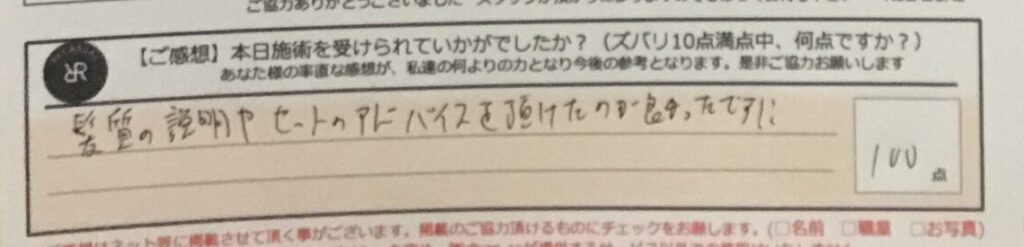 ご協力ありがとうございました
【ご感想】本日施術を受けられていかがでしたか？（ズバリ10点満点中、何点ですか？）
あなた様の率直な感想が、私達の何よりの力となり今後の参考となります。是非ご協力お願いします
髪質の説明やセットのアドバイスを頂けたのが良かったです!
100点
ネット等に掲載させて頂く事がございます。掲載のご協力頂けるものにチェックをお願します。(□名前 □職業 □お写真)